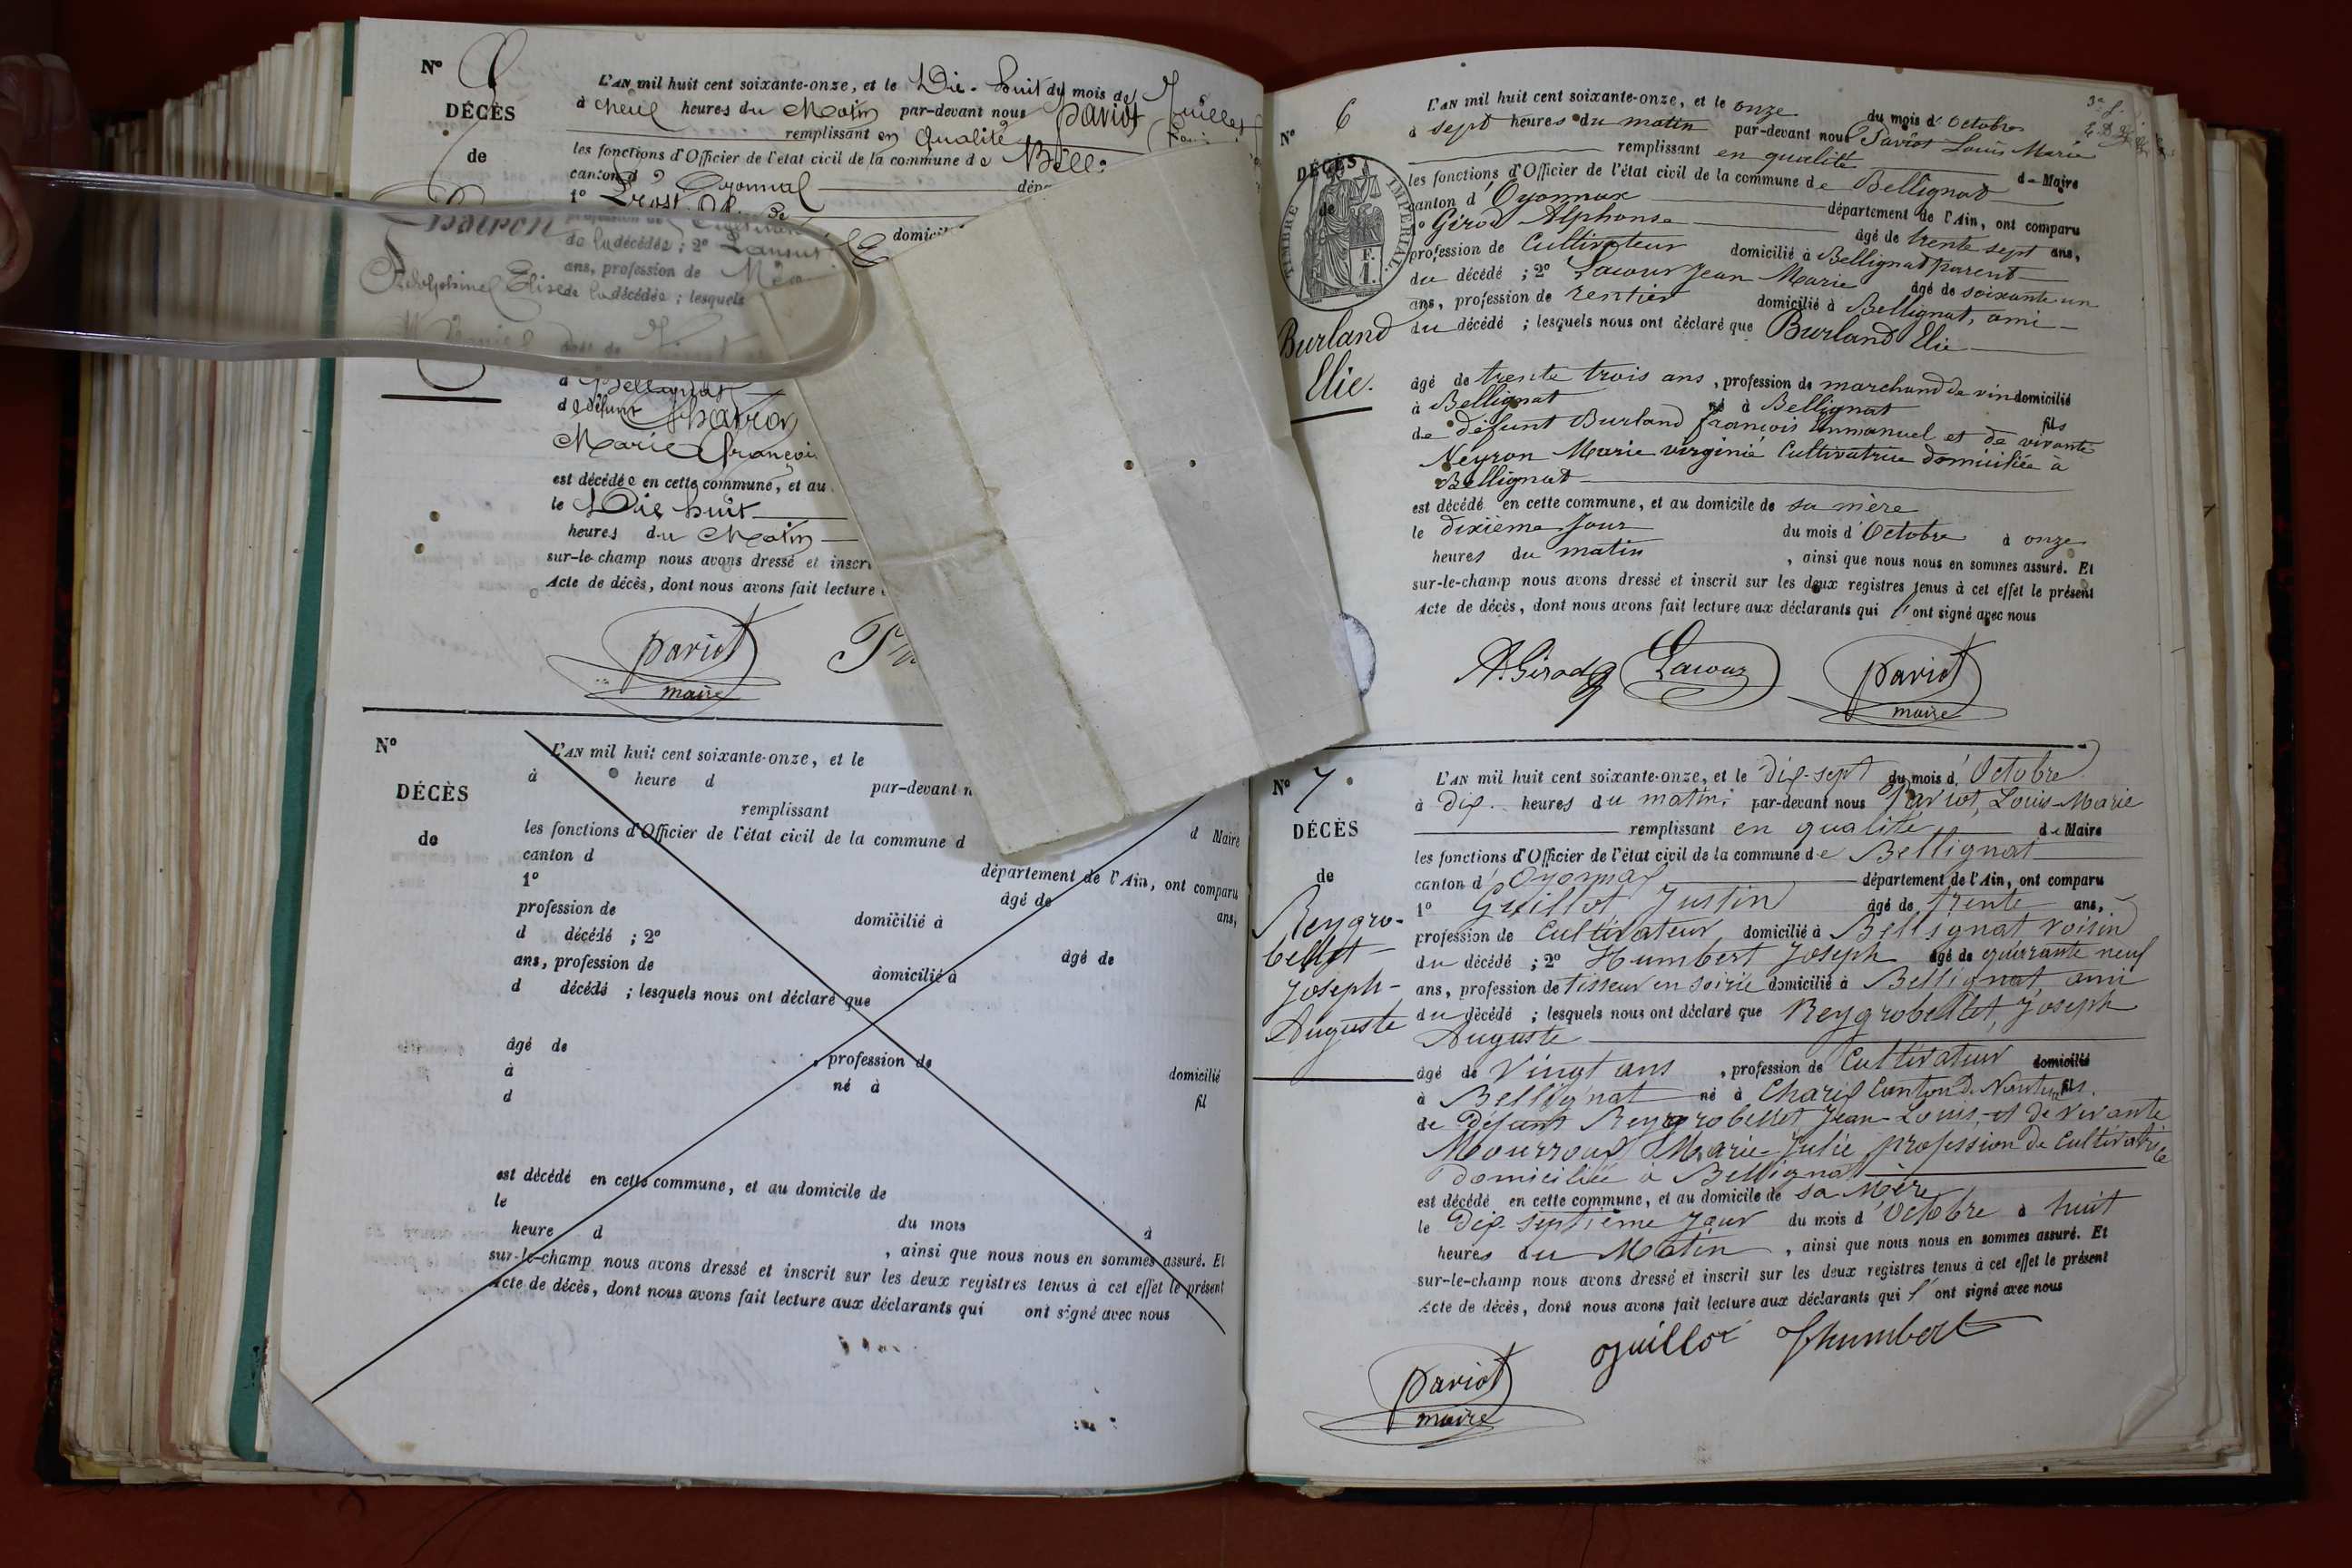 N°
DÉCÈS
de
Adolphine Elise
L'AN mil huit cent soixante-onze, et le Dix-huit du mois de Juillet
à neuf heures du Matin par-devant nous pariot
remplissant en qualité
les fonctions d'Officier de l'état civil de la commune de Belli
canton d'Oyonnax
1° Prost
domicil
de la décédée ; 2°
ans, profession de
de la décédée ; lesquels
à Bellignat
de défunt
Marie françoi
est décédée en cette commune, et au
le Dix huit
heures du Matin
sur-le-champ nous avons dressé et inscri
Acte de décès, dont nous avons fait lecture
pariot
maire
N°
DÉCÈS
de
L'AN mil huit cent soixante-onze, et le
à heure d par-devant n
remplissant d Maire
les fonctions d'Officier de l'état civil de la commune d
canton d département de l'Ain, ont comparu
1° âgé de ans,
profession de domicilié à
d décédé ; 2° âgé de
ans, profession de domicilié à
d décédé ; lesquels nous ont déclaré que
âgé de , profession de domicilié
à né à fil
d
est décédé en cette commune, et au domicile de
le du mois à
heure d , ainsi que nous nous en sommes assuré. Et
sur-le-champ nous avons dressé et inscrit sur les deux registres tenus à cet effet le présent
Acte de décès, dont nous avons fait lecture aux déclarants qui ont signé avec nous
N° 6
DÉCÈS
de
TIMBRE IMPERIAL
F.
1.
Burland
Elie.
L'AN mil huit cent soixante-onze, et le onze du mois d'Octobre
à sept heures du matin par-devant nous Pariot Louis Marie
remplissant en qualité de Maire
les fonctions d'Officier de l'état civil de la commune de Bellignat
canton d'Oyonnax département de l'Ain, ont comparu
1° Girod Alphonse âgé de trente sept ans,
profession de Cultivateur domicilié à Bellignat parent
du décédé ; 2° Lacour Jean Marie âgé de soixante un
ans, profession de rentier domicilié à Bellignat, ami
du décédé ; lesquels nous ont déclaré que Burland Elie
âgé de trente trois ans, profession de marchand de vin domicilié
à Bellignat né à Bellignat fils
de défunt Burland françois Emmanuel et de vivante
Neyron Marie virginie Cultivatrice domiciliée à
Bellignat
est décédé en cette commune, et au domicile de sa mère
le dixième Jour du mois d'Octobre à onze
heures du matin , ainsi que nous nous en sommes assuré. Et
sur-le-champ nous avons dressé et inscrit sur les deux registres tenus à cet effet le présent
Acte de décès, dont nous avons fait lecture aux déclarants qui l'ont signé avec nous
A. Girod Lacour pariot
maire
N° 7
DÉCÈS
de
Reygro-
bellet
Joseph-
Auguste
L'AN mil huit cent soixante-onze, et le dix-sept du mois d'Octobre
à dix heures du matin, par-devant nous Pariot, Louis-Marie
remplissant en qualité de Maire
les fonctions d'Officier de l'état civil de la commune de Bellignat
canton d'Oyonnax département de l'Ain, ont comparu
1° Guillot Justin âgé de trente ans,
profession de Cultivateur domicilié à Bellignat voisin
du décédé ; 2° Humbert Joseph âgé de quarante neuf
ans, profession de tisseur en soirie domicilié à Bellignat, ami
du décédé ; lesquels nous ont déclaré que Reygrobellet, Joseph
Auguste
âgé de Vingt ans , profession de Cultivateur domicilié
à Bellignat né à Charix Canton de Nantua fils.
de Défunt Reygrobellet Jean-Louis, et de vivante
Mourroux Marie-Julie profession de Cultivatrice
domiciliée à Bellignat
est décédé en cette commune, et au domicile de sa Mère
le dix-septième Jour du mois d'Octobre à huit
heures du Matin , ainsi que nous nous en sommes assuré. Et
sur-le-champ nous avons dressé et inscrit sur les deux registres tenus à cet effet le présent
Acte de décès, dont nous avons fait lecture aux déclarants qui l'ont signé avec nous
guillot Jhumbert
pariot
maire